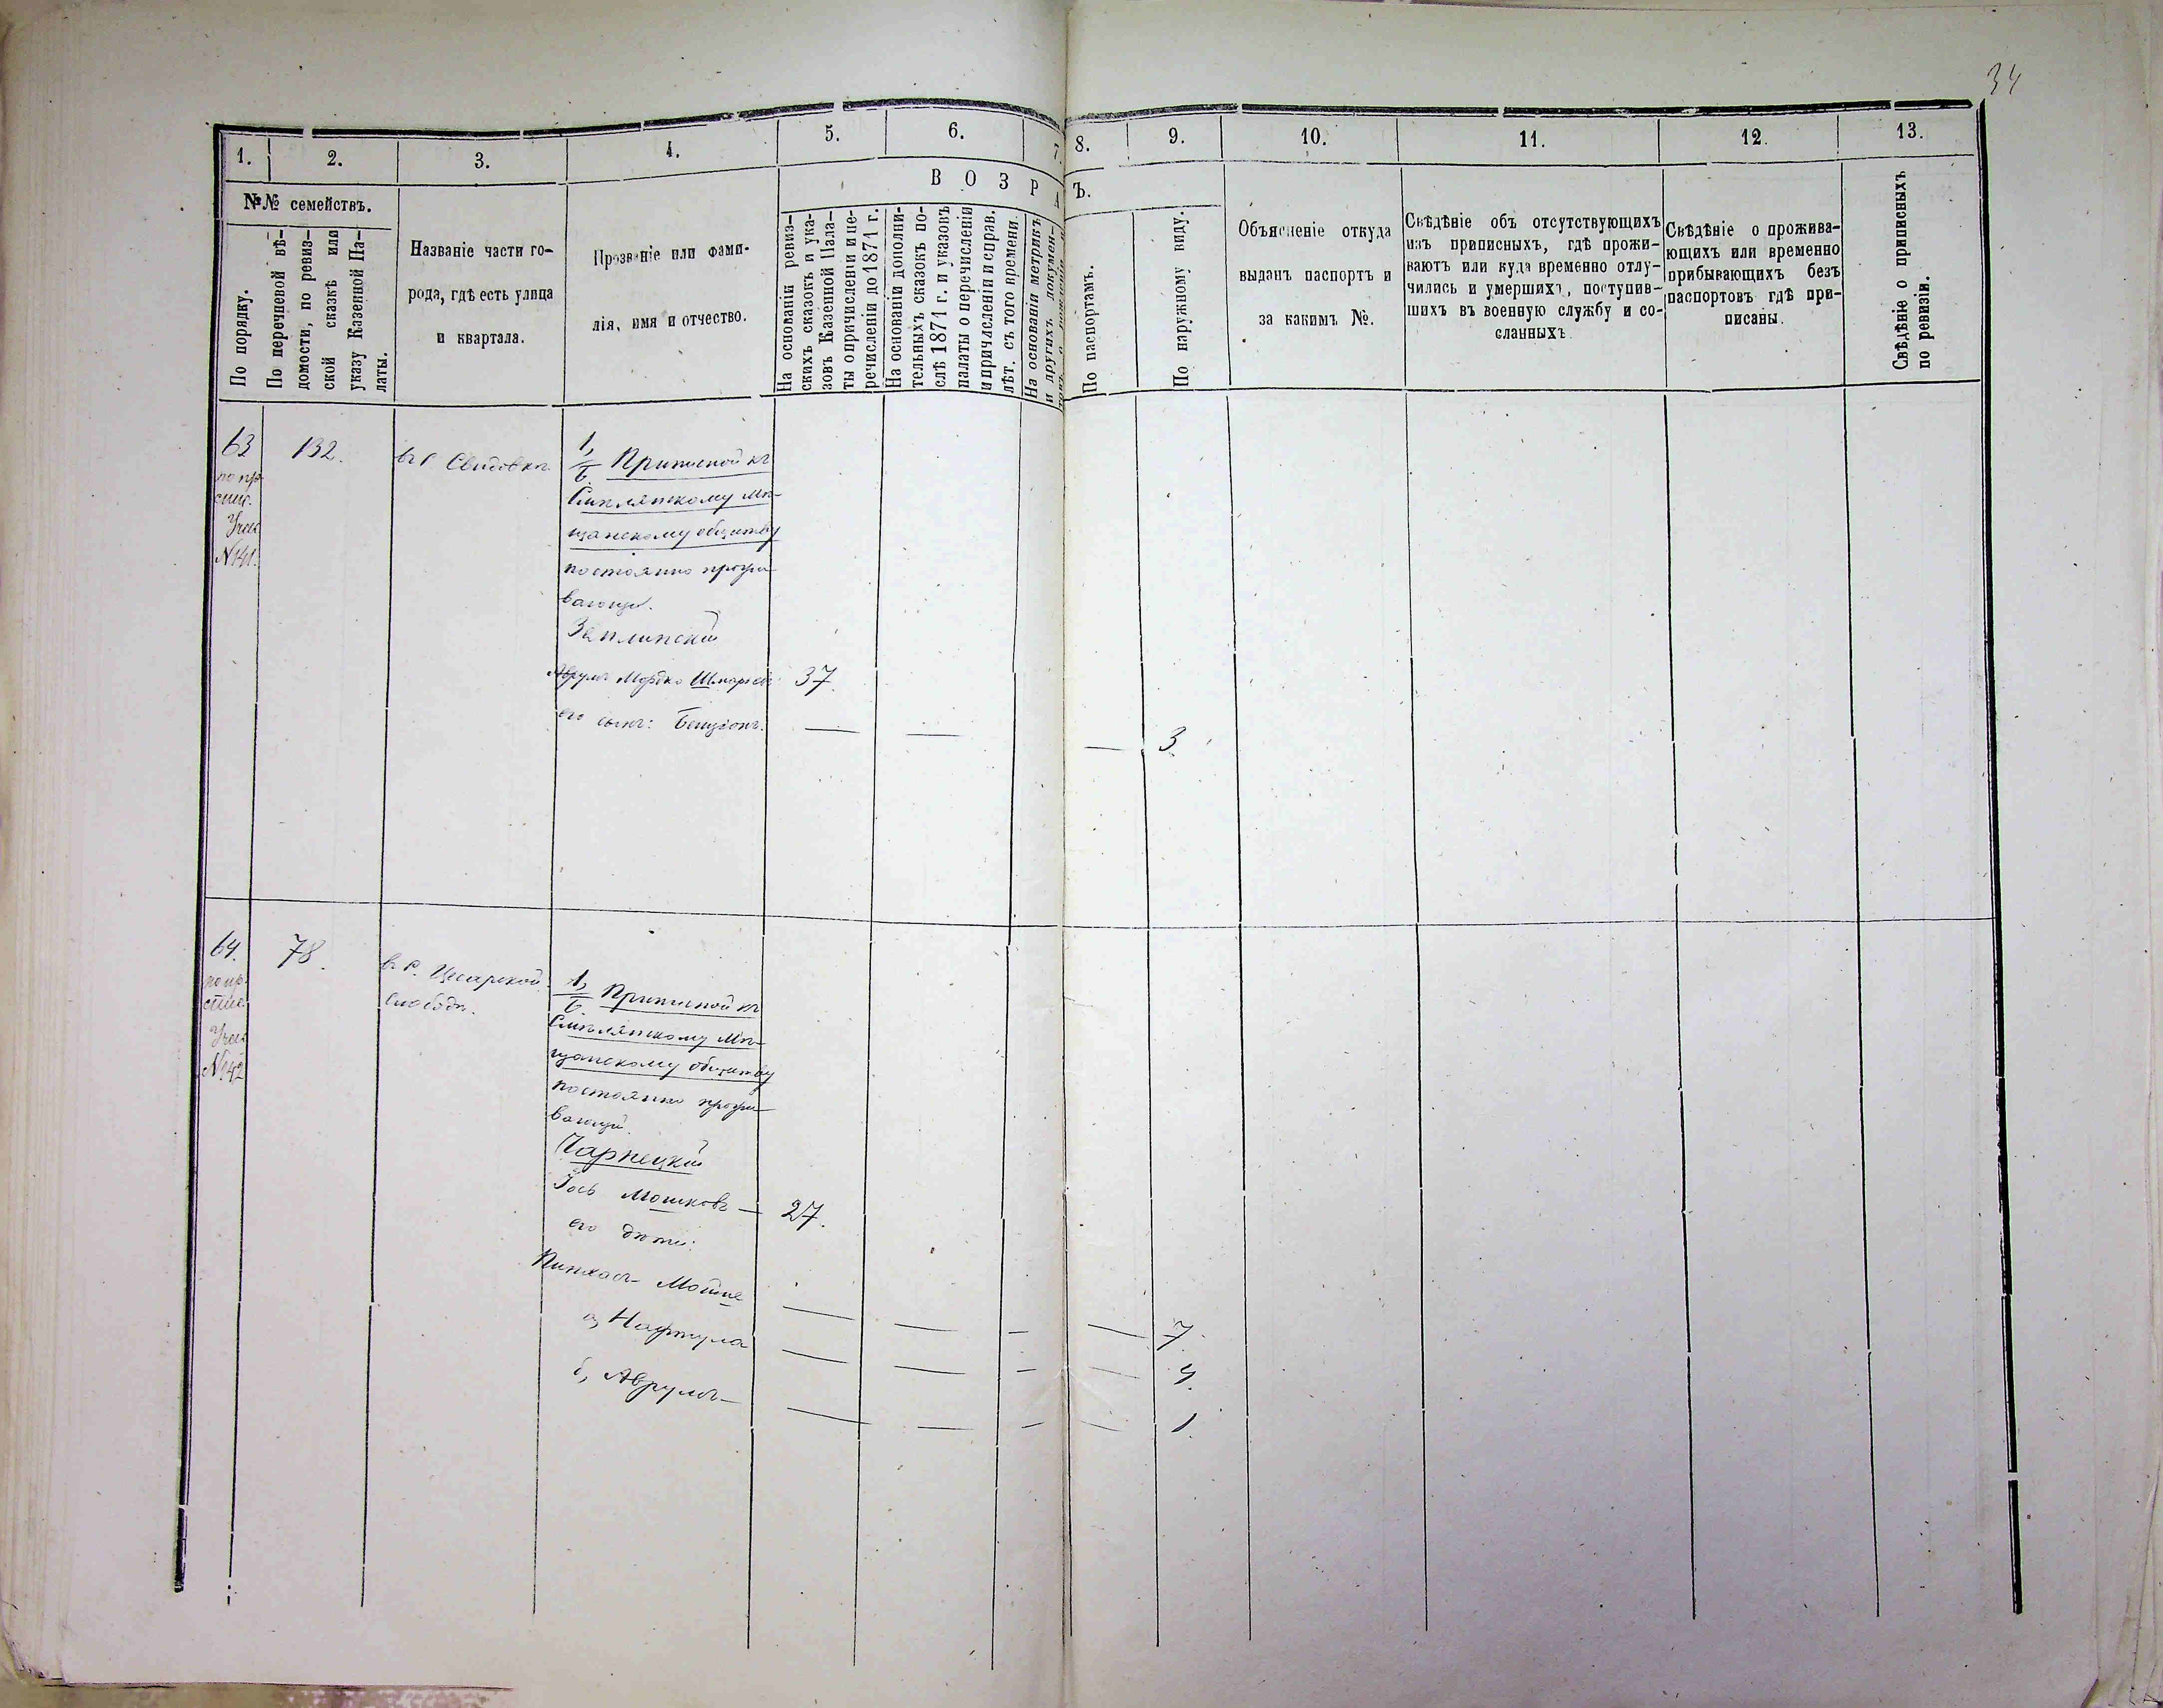 34
1. 2. 3. 4. 5. 6. 7. 8. 9. 10. 11. 12. 13.
№№ семействъ.
По порядку.
По перечневой вѣ-
домости, по ревиз-
ской сказкѣ или
указу Казенной Па-
латы.
Названіе части го-
рода, гдѣ есть улица
и квартала.
Прозваніе или фами-
лія, имя и отчество.
ВОЗРА
Ъ.
На основаніи ревиз-
скихъ сказокъ и ука-
зовъ Казенной Пала-
ты о причисленіи и пе-
речисленіи до 1871 г.
На основаніи дополни-
тельныхъ сказокъ по-
слѣ 1871 г. и указовъ
палаты о перечисленіи
и причисленіи и справ.
лѣт. съ того времени.
На основаніи метрикъ
и другихъ докумен-
По паспортамъ.
По наружному виду.
Объясненіе откуда
выданъ паспортъ и
за какимъ №.
Свѣдѣніе объ отсутствующихъ
изъ приписныхъ, гдѣ прожи-
ваютъ или куда временно отлу-
чились и умершихъ, поступив-
шихъ въ военную службу и со-
сланныхъ.
Свѣдѣніе о прожива-
ющихъ или временно
прибывающихъ безъ
паспортовъ гдѣ при-
писаны.
Свѣдѣніе о приписныхъ
по ревизіи.
63
N 141.
132.
въ с. Свидовкѣ.
Приписной къ
Смѣлянскому Мѣ-
щанскому обществу
постоянно прожи-
вающій.
Заплинскій
Аврумъ Мордко Шмаріевъ 37.
его сынъ: Бенціонъ. — — — 3.
64.
N 142
78.
въ с. Цесарской
слободѣ.
Приписной къ
Смѣлянскому Мѣ-
щанскому обществу
постоянно прожи-
вающій.
Чарнецкій
Іось Мошковъ — 27.
его дѣти:
Пинхасъ-Мойше — — — — 7.
а, Нафтула — — — — 4.
б, Аврумъ — — — — 1.